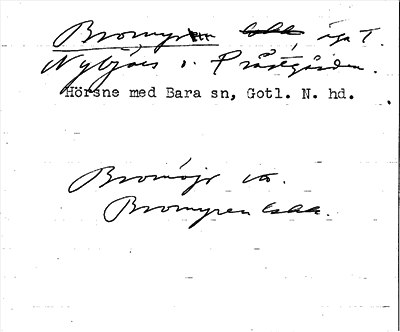 Bromyren äga T.
Nybjärs o. Prästgården.
Hörsne med Bara sn, Gotl. N. hd.
Bromöjr
Bromyren